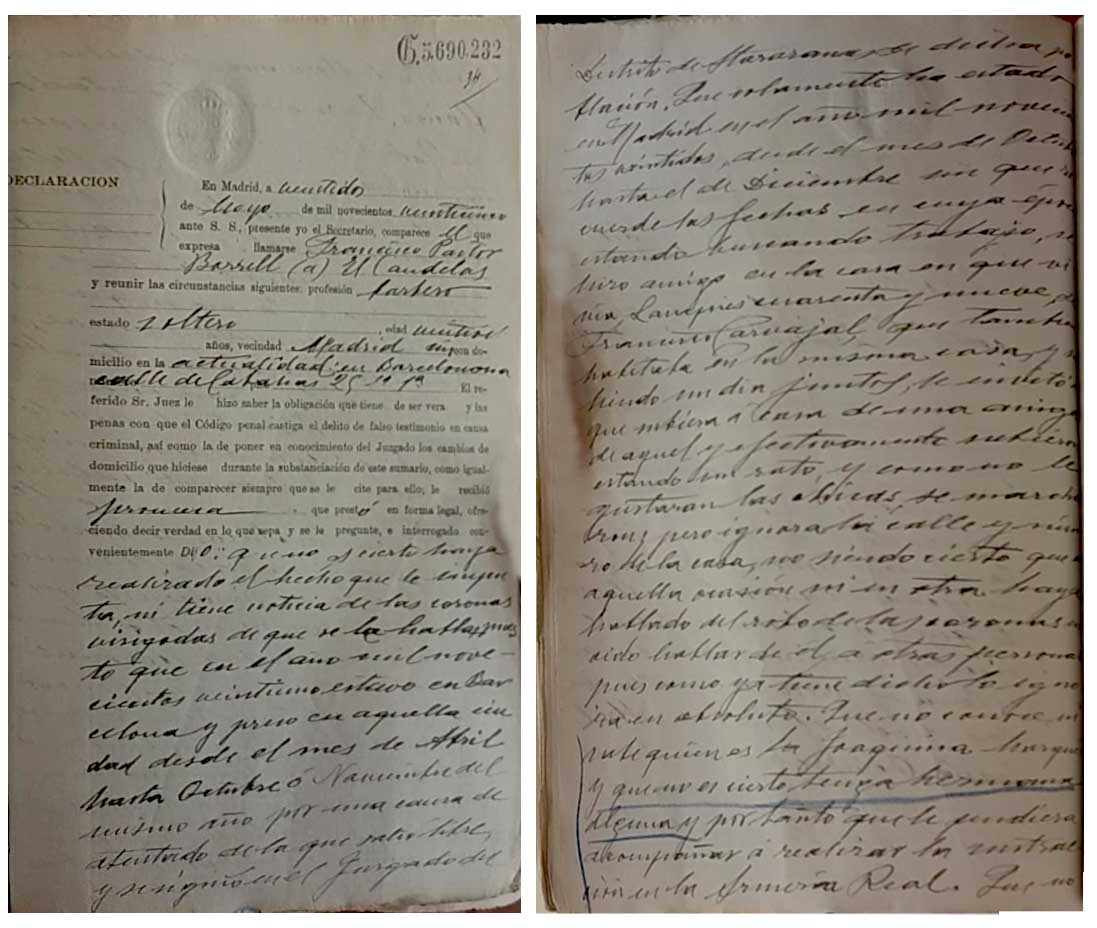 G.5.690.232
34
DECLARACION
En Madrid, a veintidos
de Mayo de mil novecientos veinticinco
ante S. S., presente yo el Secretario, comparece el que
expresa llamarse Francisco Pastor
Borrell (a) El Candelas
y reunir las circunstancias siguientes: profesión
estado soltero, edad
años, vecindad Madrid con do-
micilio en la actualidad en Barcelona
calle de Cabañas 25 1º 1ª El re-
ferido Sr. Juez le hizo saber la obligación que tiene de ser veraz y las
penas con que el Código penal castiga el delito de falso testimonio en causa
criminal, así como la de poner en conocimiento del Juzgado los cambios de
domicilio que hiciese durante la substanciación de este sumario, como igual-
mente la de comparecer siempre que se le cite para ello; le recibió
promesa, que prestó en forma legal, ofre-
ciendo decir verdad en lo que sepa y se le pregunte, e interrogado con-
venientemente DIJO: que no es cierto haya
realizado el hecho que se le impu
ta, ni tiene noticia de las coronas
visigodas de que se la habla, pues
to que en el año mil nove-
cientos veintiuno estuvo en Bar
celona y preso en aquella ciu
dad desde el mes de Abril
hasta Octubre ó Noviembre del
mismo año por una causa de
atentado de la que salió libre,
y se siguió en el Juzgado del
Distrito de Atarazanas de dicha po
blación. Que solamente ha estado
en Madrid en el año mil novecien
tos veintidos, desde el mes de Octub
hasta el de Diciembre sin que re
cuerde las fechas en cuya época
estando buscando trabajo, se
hizo amigo en la casa en que vi
vía, cuarenta y nueve, de
Francisco Carvajal, que tambien
habitaba en la misma casa, y
un dia juntos, le invitó
que subiera a casa de una amiga
de aquel y efectivamente subieron
estando un rato y como no le
gustaran las chicas, se marcha
ron, pero ignora la calle y núme
ro de la casa, no siendo cierto que en
aquella ocasión ni en otra haya
hablado del robo de las coronas ni
oido hablar de el a otras personas
pues como ya tiene dicho lo igno
ra en absoluto. Que no conoce ni
sabe quien es la Joaquina Marque
y que no es cierto tenga hermana
alguna y por tanto que le pudiera
acompañar á realizar la sustrac
ción en la Armería Real. Que no